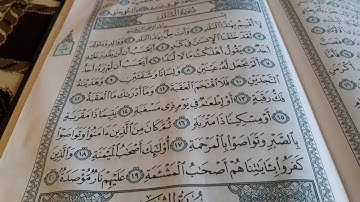 سُورَةُ الْبَلَدِ
لَا أُقْسِمُ بِهَٰذَا الْبَلَدِ ١ وَأَنتَ حِلٌّ بِهَٰذَا الْبَلَدِ ٢ وَوَالِدٍ وَمَا وَلَدَ ٣
لَقَدْ خَلَقْنَا الْإِنسَٰنَ فِي كَبَدٍ ٤ أَيَحْسَبُ أَن لَّن يَقْدِرَ عَلَيْهِ أَحَدٌ ٥
يَقُولُ أَهْلَكْتُ مَالًا لُّبَدًا ٦ أَيَحْسَبُ أَن لَّمْ يَرَهُ أَحَدٌ ٧
أَلَمْ نَجْعَل لَّهُ عَيْنَيْنِ ٨ وَلِسَانًا وَشَفَتَيْنِ ٩ وَهَدَيْنَٰهُ
النَّجْدَيْنِ ١٠ فَلَا اقْتَحَمَ الْعَقَبَةَ ١١ وَمَا أَدْرَىٰكَ مَا الْعَقَبَةُ ١٢
فَكُّ رَقَبَةٍ ١٣ أَوْ إِطْعَٰمٌ فِي يَوْمٍ ذِي مَسْغَبَةٍ ١٤ يَتِيمًا ذَا مَقْرَبَةٍ
١٥ أَوْ مِسْكِينًا ذَا مَتْرَبَةٍ ١٦ ثُمَّ كَانَ مِنَ الَّذِينَ ءَامَنُوا وَتَوَاصَوْا
بِالصَّبْرِ وَتَوَاصَوْا بِالْمَرْحَمَةِ ١٧ أُولَٰئِكَ أَصْحَٰبُ الْمَيْمَنَةِ ١٨ وَالَّذِينَ
كَفَرُوا بِـَٔايَٰتِنَا هُمْ أَصْحَٰبُ الْمَشْـَٔمَةِ ١٩ عَلَيْهِمْ نَارٌ مُّؤْصَدَةٌ ٢٠